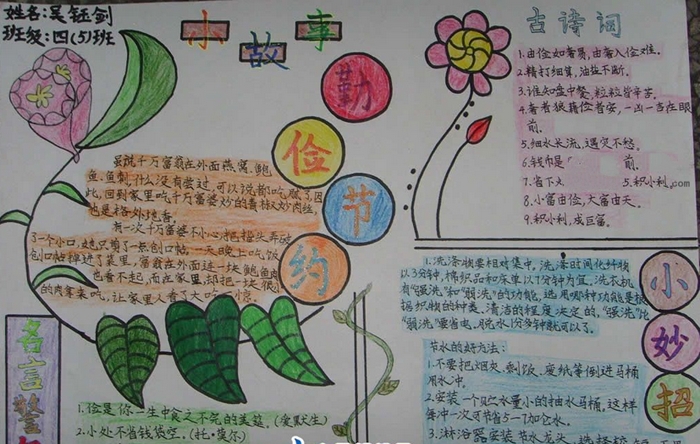 姓名:吴钰剑
班级:四(5)班
小故事
勤俭节约
虽说千万富翁在外面燕窝、鲍
鱼、鱼刺,什么没有尝过,可以说都吃腻了,因
此,回到家里吃千万富婆炒的青椒炒肉丝,
也是格外挑香。
有一次千万富婆不小心把指头弄破
了一个小口,她只剪了一点创口帖,一天晚上吃饭
创口帖掉进了菜里,富翁在外面连一块鲍鱼肉
也看不起,而在家里,却把一块很
的肉拿来吃,让家里人看了大吃一惊。
名言警
1.俭是你一生中食之不完的美筵。(爱默生)
2.小处不省钱袋空。(托·莫尔)
古诗词
1.由俭如奢易,由奢入俭难。
2.精打细算,油盐不断。
3.谁知盘中餐,粒粒皆辛苦。
4.奢者狼藉俭者安,一凶一吉在眼
前。
5.细水长流,遇灾不愁。
6.钱币是 前。
7.省下 5.积小利
8.小富由俭,大富由天。
9.积小利,成巨富。
小妙招
1.洗涤物要相对集中,洗涤时间化纤物
以3分钟,棉织品和床单以7分钟为宜,洗衣机
有“强洗”和“弱洗”的功能,选用哪种功能是根
据织物的种类、清洁的程度决定的,“强洗”比
“弱洗”要省电,脱水1分多钟就可以了。
节水的好方法:
1.不要把烟灰、剩饭、废纸等倒进马桶
用水冲。
2.安装一个贮水量小的抽水马桶,这样
每冲一次可节省5-7加仑水。
3.淋浴器安装节水龙头